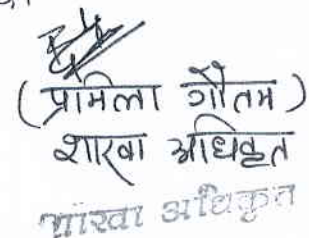 (प्रमिला गौतम)
शाखा अधिकृत
शाखा अधिकृत